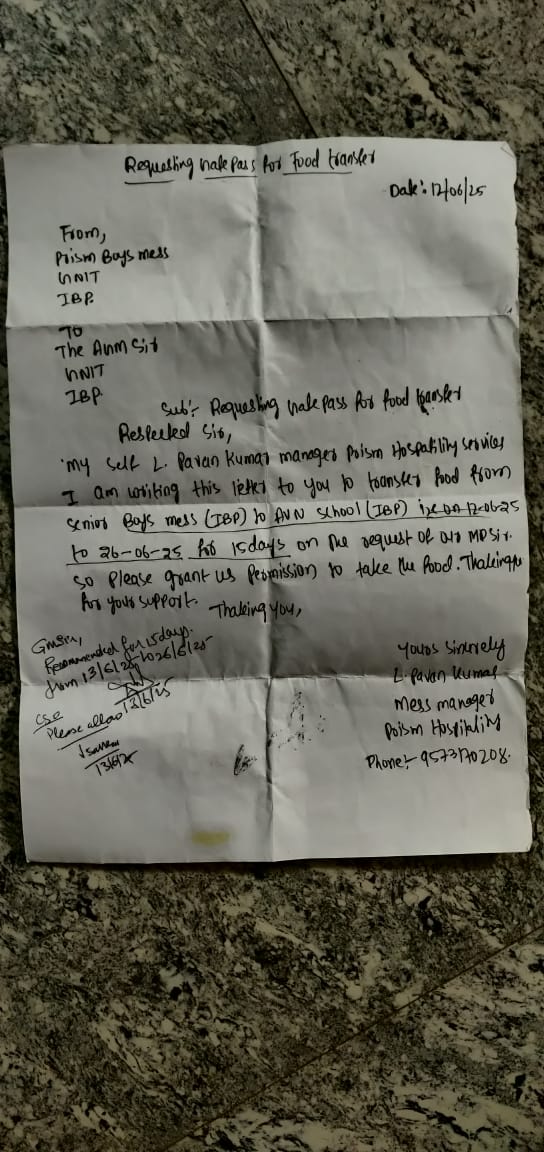 Requesting Gate Pass for Food transfer
Date:- 12/06/25
From,
Prism Boys mess
NNIT
IBP.
To
The Anm Sir
NNIT
IBP
Sub:- Requesting Gate Pass for food transfer
Respected Sir,
my self L. Pavan Kumar manager Prism Hospitality services
I am writing this letter to you to transfer food from
senior Boys mess (IBP) to AVN school (IBP) on 12-06-25
to 26-06-25 for 15days on the request of our MD Sir.
so Please grant us Permission to take the food. Thanking
for your support.
Thanking you,
Recommended for 15 days.
from 13/6/25 to 26/6/25
13/6/25
CSO
Please allow
13/6/25
yours sincerely
L. Pavan Kumar
Mess manager
Prism Hospitality
Phone:- 9573170208.